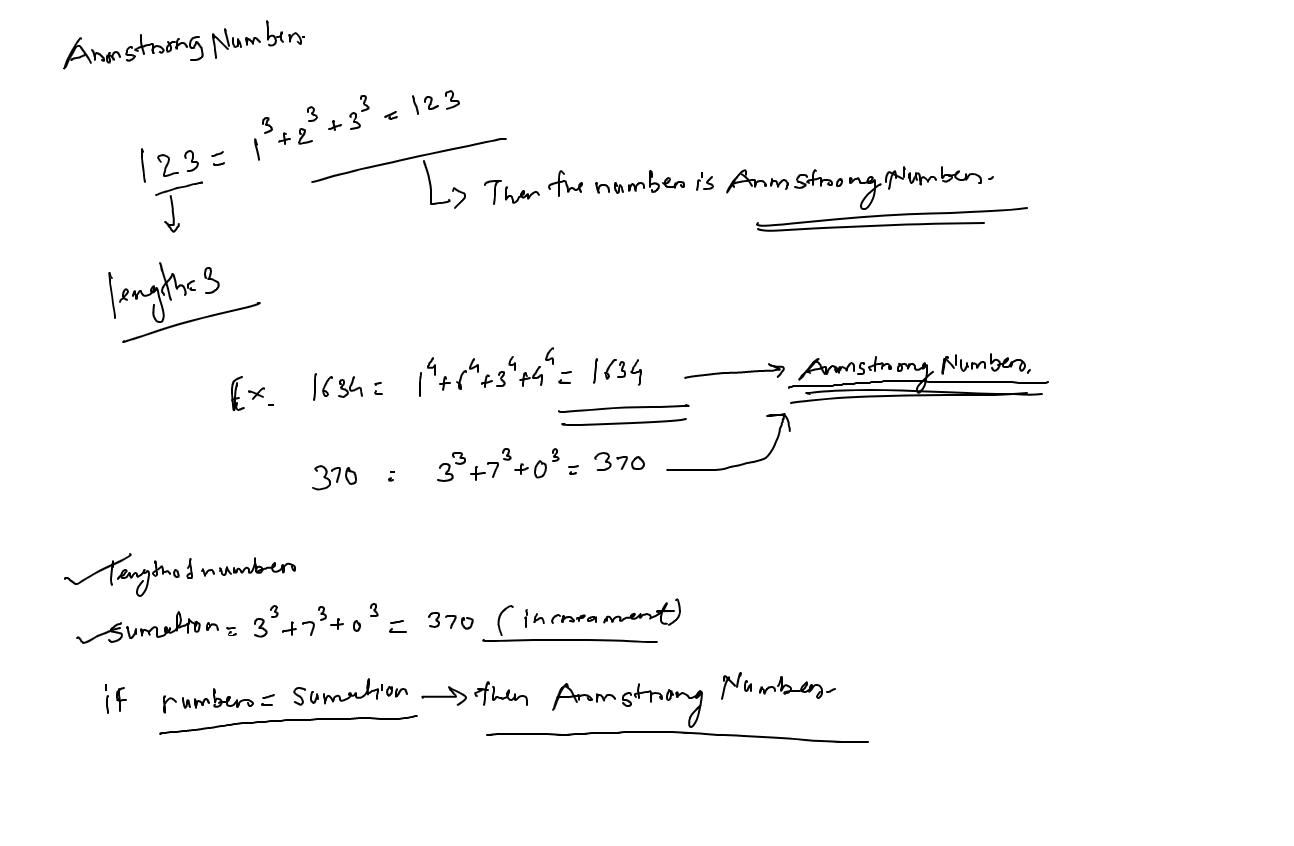 Armstrong Number
123 = 1³+2³+3³ = 123
Then the number is Armstrong Number.
length=3
Ex. 1634 = 1⁴+6⁴+3⁴+4⁴ = 1634 → Armstrong Number.
370 = 3³+7³+0³ = 370
length of number
sumation = 3³+7³+0³ = 370 (increament)
if number = sumation → then Armstrong Number